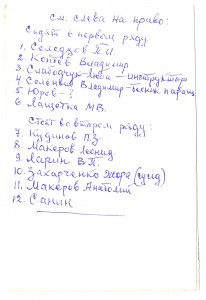 см. слева на право:
Сидят в первом ряду
1. Селедцов П.И.
2. Коптев Владимир
3. Слабодчук Люба – инструктор
4. Соленый Владимир –
5. Юров – ?
6. Лащетка М.В.
Стоят во втором ряду:
7. Кудинов П.З.
8. Макеров Леонид
9. Ларин В.П.
10. Захарченко Жора (судья)
11. Макеров Анатолий
12. Санин